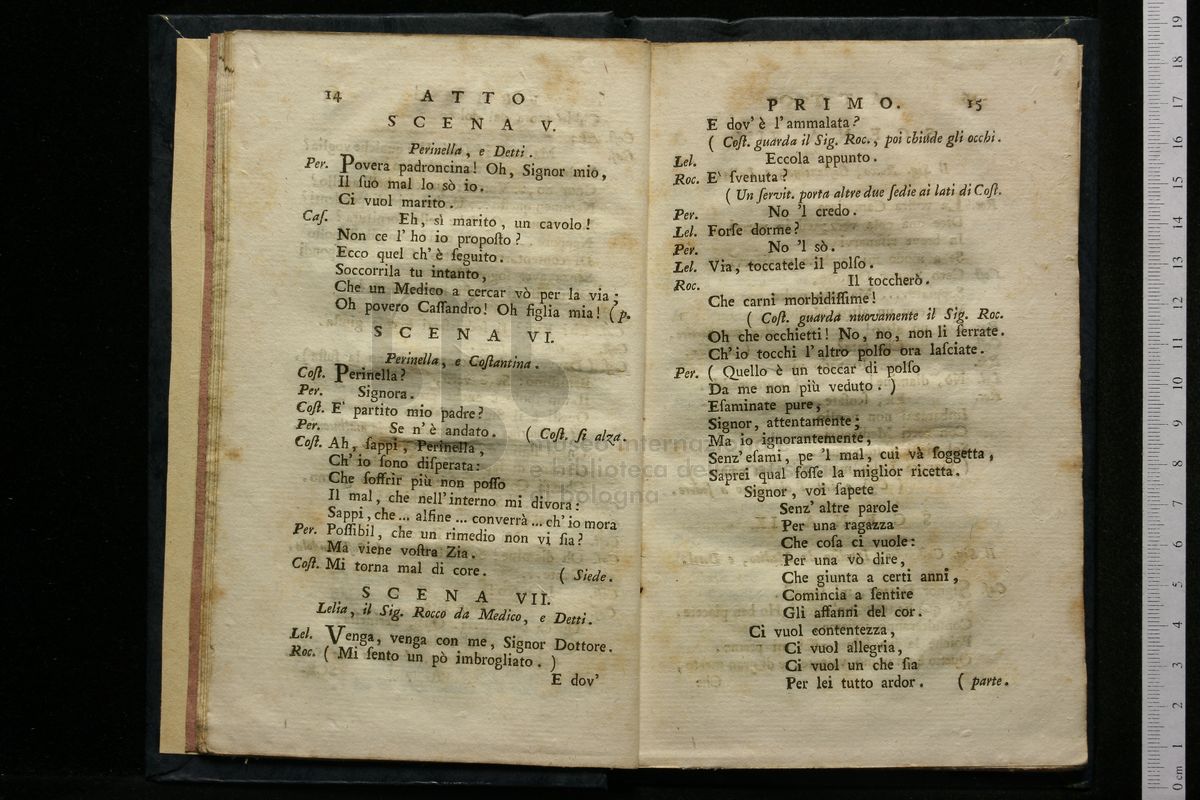 14 ATTO
SCENA V.
Perinella, e Detti.
Per. Povera padroncina! Oh, Signor mio,
Il ſuo mal lo sò io.
Ci vuol marito.
Caſ. Eh, sì marito, un cavolo!
Non ce l'ho io propoſto?
Ecco quel ch'è ſeguito.
Soccorrila tu intanto,
Che un Medico a cercar vò per la via;
Oh povero Caſſandro! Oh figlia mia! (p.
SCENA VI.
Perinella, e Coſtantina.
Coſt. Perinella?
Per. Signora.
Coſt. E' partito mio padre?
Per. Se n'è andato. (Coſt. ſi alza.
Coſt. Ah, ſappi, Perinella,
Ch'io ſono diſperata:
Che ſoffrir più non poſſo
Il mal, che nell'interno mi divora:
Sappi, che... alfine... converrà... ch'io mora
Per. Poſſibil, che un rimedio non vi ſia?
Ma viene voſtra Zia.
Coſt. Mi torna mal di core. (Siede.
SCENA VII.
Lelia, il Sig. Rocco da Medico, e Detti.
Lel. Venga, venga con me, Signor Dottore.
Roc. (Mi ſento un pò imbrogliato.)
E dov'
PRIMO. 15
E dov'è l'ammalata?
(Coſt. guarda il Sig. Roc., poi chiude gli occhi.
Lel. Eccola appunto.
Roc. E' ſvenuta?
(Un ſervit. porta altre due ſedie ai lati di Coſt.
Per. No 'l credo.
Lel. Forſe dorme?
Per. No 'l sò.
Lel. Via, toccatele il polſo.
Roc. Il toccherò.
Che carni morbidiſſime!
(Coſt. guarda nuovamente il Sig. Roc.
Oh che occhietti! No, no, non li ſerrate.
Ch'io tocchi l'altro polſo ora laſciate.
Per. (Quello è un toccar di polſo
Da me non più veduto.)
Eſaminate pure,
Signor, attentamente;
Ma io ignorantemente,
Senz'eſami, pe 'l mal, cui và ſoggetta,
Saprei qual foſſe la miglior ricetta.
Signor, voi ſapete
Senz'altre parole
Per una ragazza
Che coſa ci vuole:
Per una vò dire,
Che giunta a certi anni,
Comincia a ſentire
Gli affanni del cor.
Ci vuol contentezza,
Ci vuol allegria,
Ci vuol un che ſia
Per lei tutto ardor. (parte.
0 cm 1 2 3 4 5 6 7 8 9 10 11 12 13 14 15 16 17 18 19